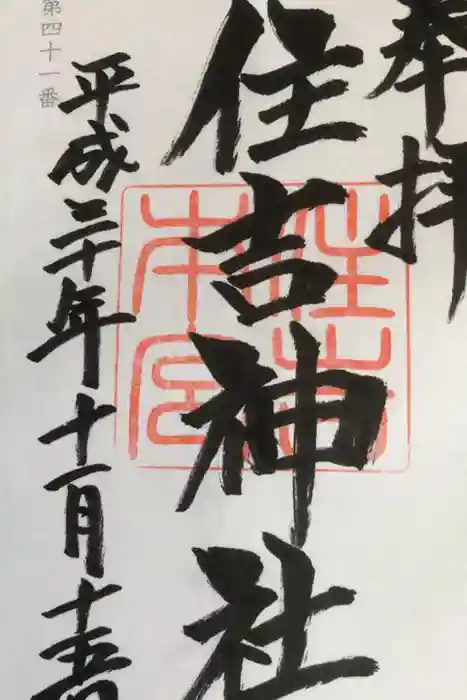 奉拝
住吉神社
住吉本宮
平成三十年十一月十五
第四十一番